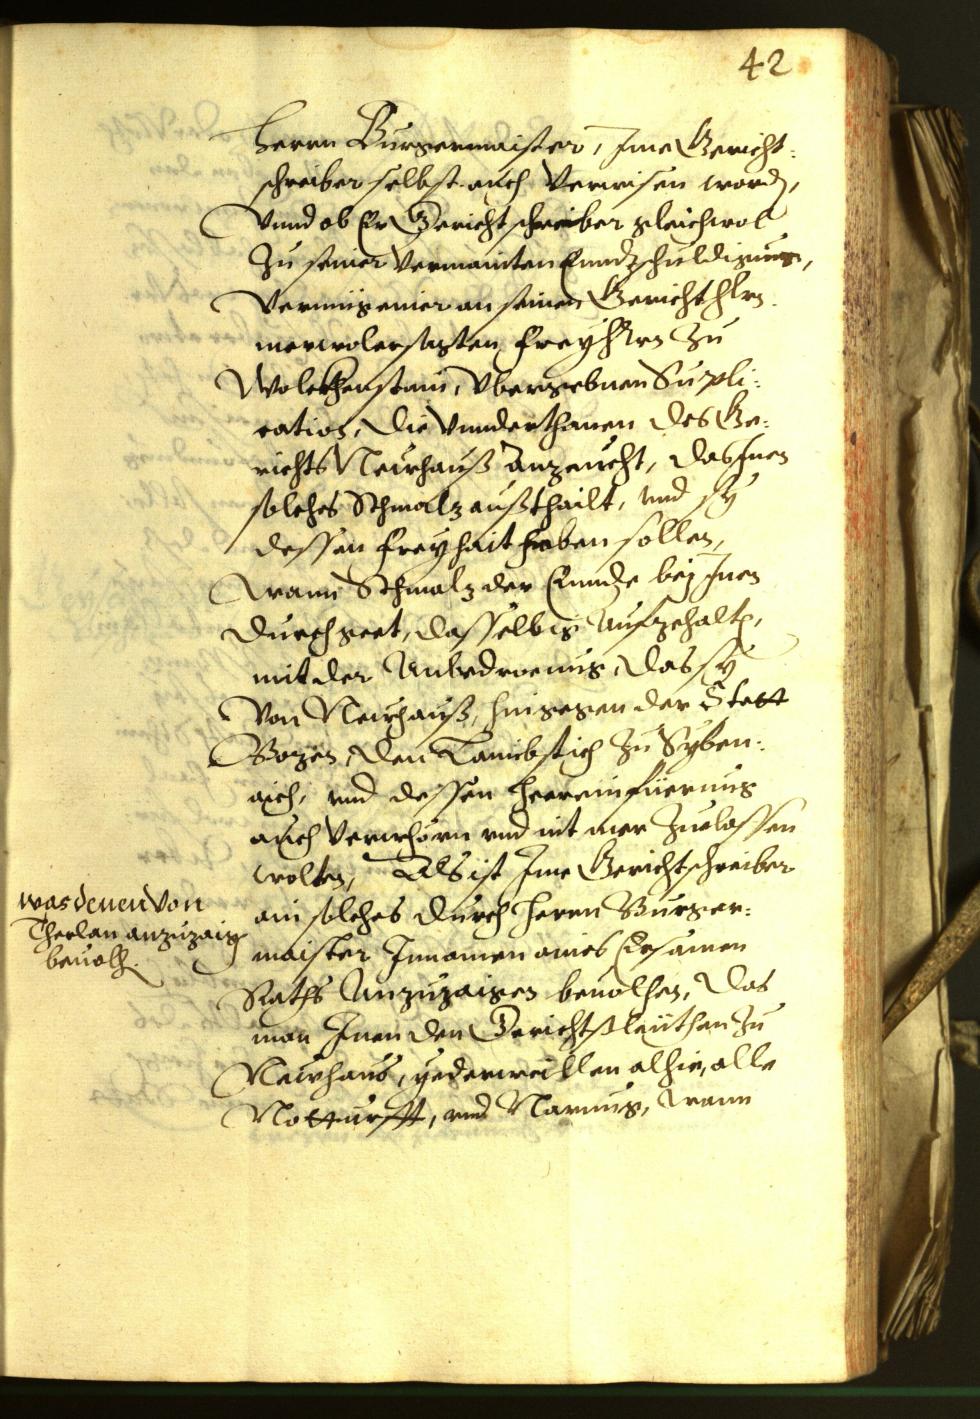 42
herrn Burgermaister, Ime Gericht-
schreiber selbst auch verwisen worden,
Vnnd ob Er Gerichtschreiber gleichwol
Zu seiner vermainten Enndtschuldigung,
an seinen Gerichtsherrn
Freyherrn Zu
Wolckhenstain, Vbergebnen Suppli-
cation, die Vnnderthanen des Ge-
richts Newhauß anzeucht, das Inen
solches Schmalz außthailt, vnd sy
dessen Freyhait haben sollen,
wann Schmalz der Ennde bej Inen
durchgeet, dasselbig Aufzehalten,
mit der Anbedroeung, das sy
von Newhauß, hingegen der Statt
Bozen, den zu Syben-
aich, vnd dessen hereinfüerung
auch verwhörn vnd nit mer Zuelassen
wolten, Als ist Ime Gerichtschreiber
ain solches durch herrn Burger-
maister Innamen aines Ersamen
Raths Anzuzaigen beuolhen, das
man Inen den Gerichtsleüthen Zu
Newhaus, yederweillen alhie, alle
Notturfft, vnd Narung, wann
was denen von
Therlan anzuzaigen
beuolhen.